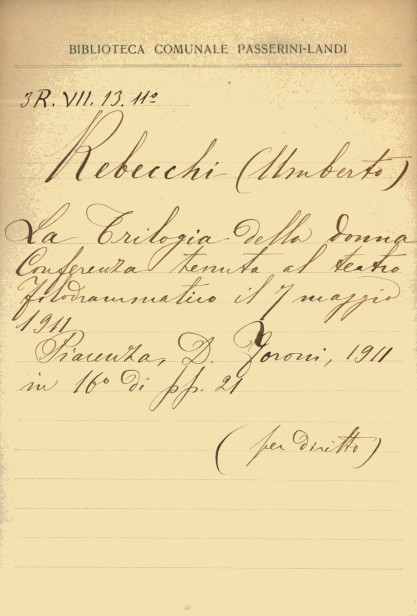 BIBLIOTECA COMUNALE PASSERINI-LANDI
3R. VII. 13. 11º
Rebecchi (Umberto)
La Trilogia della donna
Conferenza tenuta al teatro
filodrammatico il 7 maggio
1911
Piacenza, D. Foroni, 1911
in 16º di pp. 21
(per diritto)